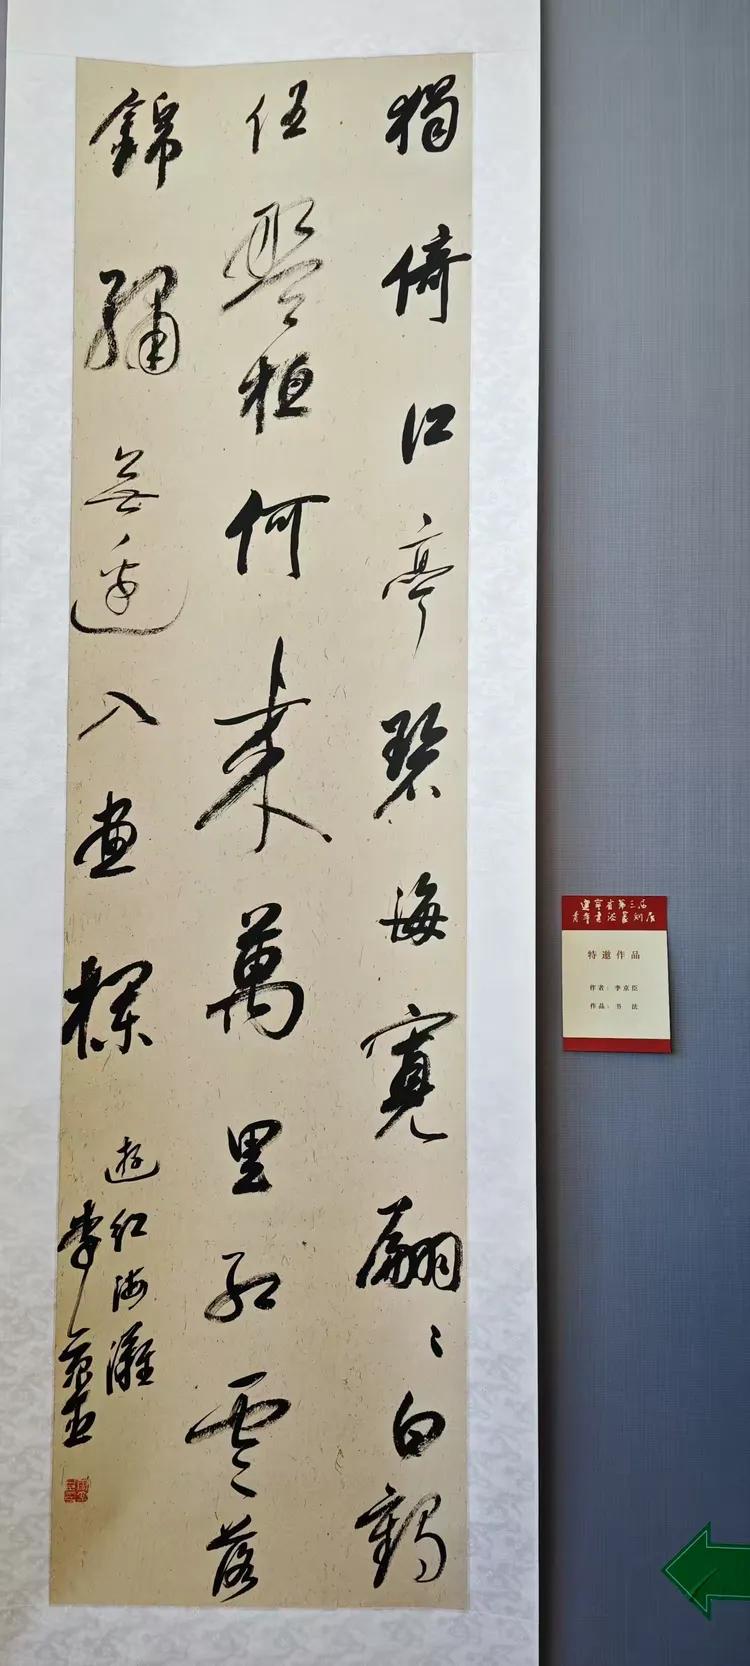 獨倚江亭碧海寬翩〻白鶴
伍盤桓何来萬里紅雲落
錦繡無邊入畫欄
遊紅海灘
李京臣
遼寧省第三届
青年書法篆刻展
特邀作品
作者：李京臣
作品：书 法